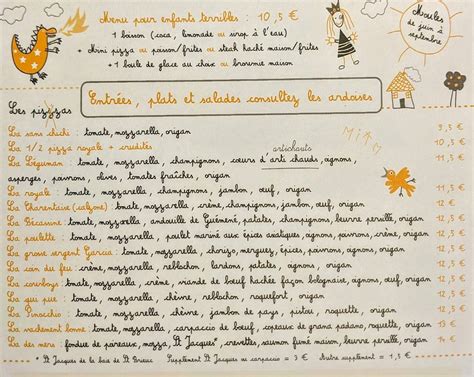 Menu pour enfants terribles : 10,5 €
1 boisson (coca, limonade ou sirop à l'eau)
+ Mini pizza ou poisson/frites ou steak haché maison/frites
+ 1 boule de glace au choix ou brownie maison
Moules
de juin à
septembre
Entrées, plats et salades consultez les ardoises
MIAM
Les pizzzas
La sans chichi : tomate, mozzarella, origan 9,5 €
La 1/2 pizza royale + crudités 10,5 €
artichauts
La Léguman : tomate, mozzarella, champignons, cœurs d'arti chauds, oignons, 11 €
asperges, poivrons, olives, tomates fraîches, origan
La royale : tomate, mozzarella, champignons, jambon, œuf, origan 11 €
La Charentaise (calzone) tomate, mozzarella, crème, champignons, jambon, œuf, origan 12 €
La Bécassine : tomate, mozzarella, andouille de Guémené, patates, champignons, beurre persillé, origan 12,5 €
La poulette : tomate, mozzarella, poulet mariné aux épices asiatiques, oignons, poivrons, origan
La grosse sergent Garcia : tomate, mozzarella, chorizo, merguez, épices, poivrons, oignons, origan
La cün du feu : crème, mozzarella, reblochon, lardons, patates, oignons, origan
La cowboys : tomate, mozzarella, crème, viande de bœuf hachée façon bolognaise, oignons, œuf, origan
La qui pue : tomate, mozzarella, chèvre, reblochon, roquefort, origan
La Pinocchio : tomate, mozzarella, chèvre, jambon de pays, pistou, roquette, origan
La vachement bonne : tomate, mozzarella, carpaccio de bœuf, copeaux de grana padano, roquette, origan 13 €
La des mers : fondue de poireaux, mozza, St Jacques*, crevettes, saumon fumé maison, beurre persillé, origan 14 €
* St Jacques de la baie de St Brieuc Supplément St Jacques ou carpaccio = 3 € Autre supplément = 1,5 €